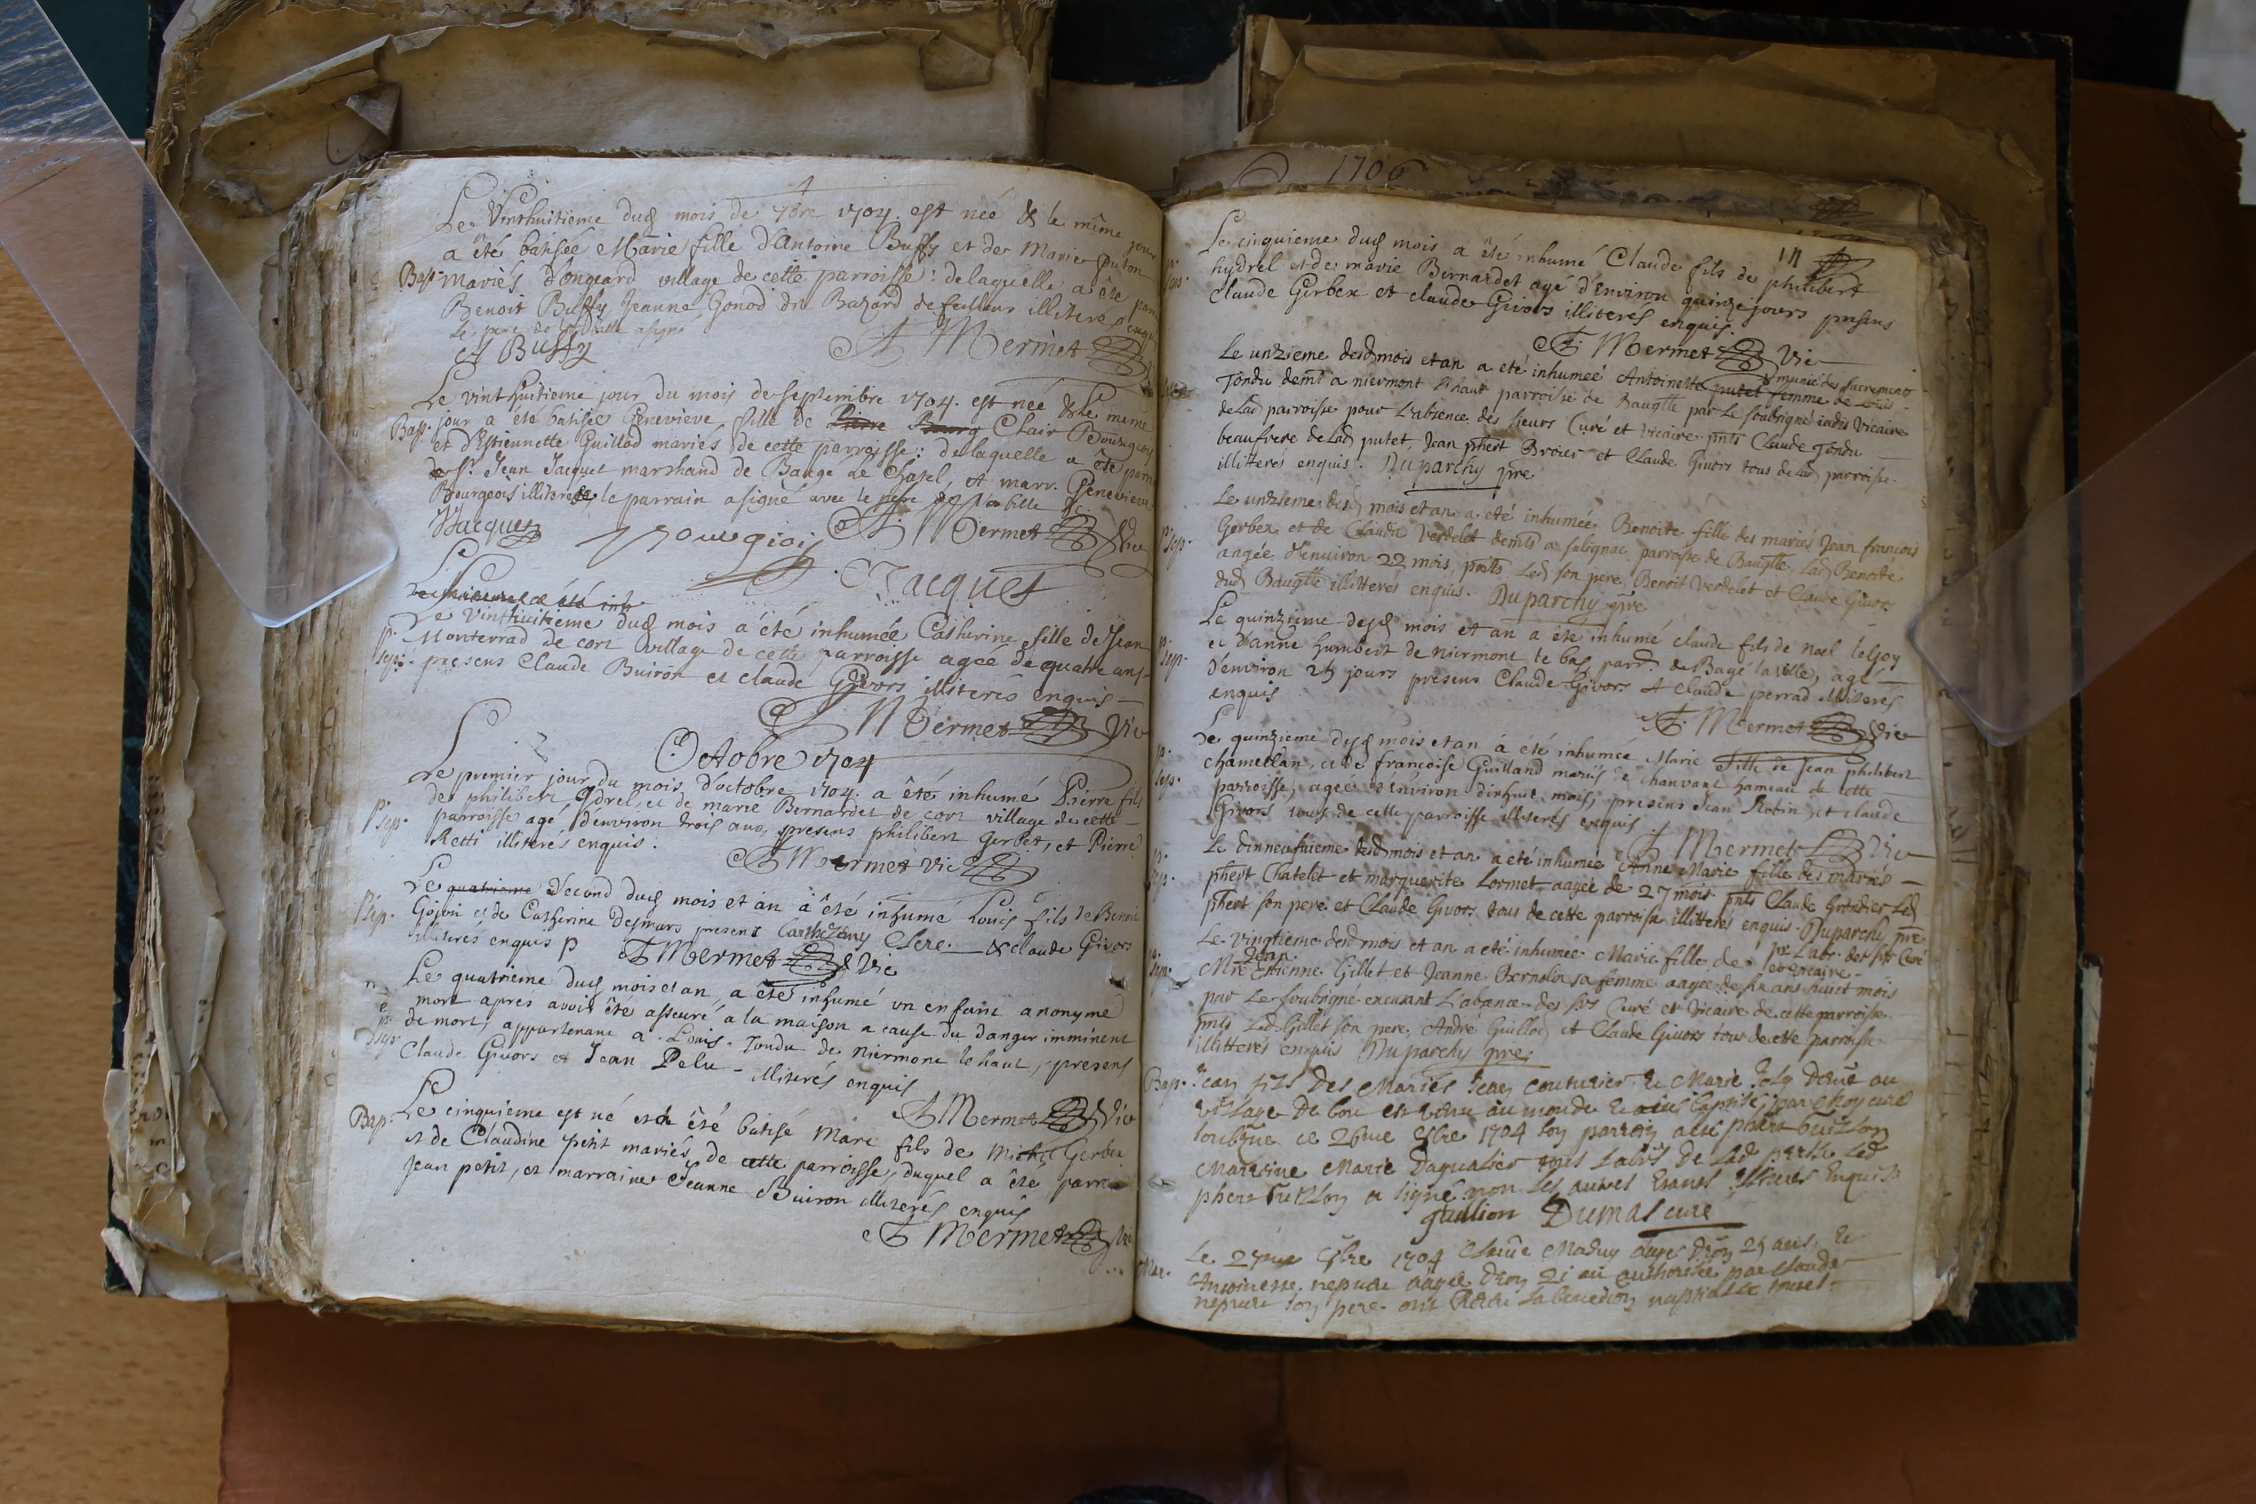 Le Vinthuitieme dud mois de 7bre 1704. est née & le même jour
a été batisée Marie fille d'Antoine Buffy et de Marie puton
Bap. mariés d'ongeard village de cette parroisse : de laquelle a été parr
Benoit Buffy Jeanne Gonod du Bazard de feillens illiteres enquis
le pere de fille a signé
Buffy A Mermet
Le vint huitieme jour du mois de septembre 1704. est née & le meme
Bap. jour a eté batisée Genevieve fille de Pierre Bourg Clair Bourgeois
et d'Estiennette Guillod mariés de cette parroisse : de laquelle a été parrin
Sr. Jean Jacquet marchand de Bauge le Chatel, et marr. Genevieve
Bourgeois illiterée, le parrain a signé avec le pere de la fille
JJacquet Bourgioij A. Mermet Vic
Jacquet
Le a été inh
Le vinthuitieme dud mois a été inhumée Catherine fille de Jean
p. sep. Monterrad de cort village de cette parroisse ageé de quatre ans
presens Claude Buiron et claude Givors illiterés enquis
A Mermet Vic
Octobre 1704
Le premier jour du mois d'octobre 1704. a été inhumé Pierre fils
de philibert ydrel et de marie Bernardet de cort village de cette
p. sep. parroisse agé d'environ trois ans, presens philibert Gerbet, et Pierre
Retti illiterés enquis.
A Mermet Vic
Le quatrieme second dud mois et an a été inhumé Louis fils de Benoit
p. sep. Gojon et de Catherine Desmurs present Clere & claude Givors
illiterés enquis A Mermet Vic
Le quatrieme dud mois et an a été inhumé un enfant anonyme
mort apres avoir été asseuré a la maison a cause du danger imminent
p. sep. de mort, appartenant a Louis Tondu de niermont le haut, presens
Claude Givors et Jean Pelu illiterés enquis
A Mermet Vic
Bap. Le cinquieme est né et a été batisé Marc fils de Michel Gerbex
et de Claudine petit mariés de cette parroisse, duquel a été parr
Jean petit, et marraine Jeanne Buiron illiterés enquis
A Mermet Vic
1706
Le cinquieme dud mois a été inhumé Claude fils de philibert
hydrel et de marie Bernardet agé d'environ quinze jours presens
Claude Gerbex et claude Givors illiterés enquis.
A. Mermet Vic
Le unzieme desd mois et an a eté inhumeé Antoinette putet femme de Louis munie des sacrements
Tondu demt a niermont le haut parroisse de Baugtte par Le soubsigné jadis vicaire
de lad parroisse pour L'absence des sieurs Curé et vicaire pnts Claude Tondu
beaufrere de lad putet, Jean phert Broier et Claude Givors tous de lad parroisse
illitterés enquis. Duparchy pre
Le unzieme desd mois et an a été inhumée Benoite fille des mariés Jean françois
p. sep. Gerbex et de Claudie Verdelet demts a salignac parroisse de Baugtte, lad Benoite
angée d'environ 22 mois, pnts Led son pere, Benoit Verdelet et Claude Givors
dud Baugtte illitterés enquis. Duparchy pre
Le quinzieme desd mois et an a été inhumé claude fils de noel
p. sep. et d'anne humbert de niermont le bas parr. de Bagé la ville, agé
d'environ 25 jours presens Claude Givors et Claude perrad illiterés
enquis A. Mermet Vic
Le quinzieme dud mois et an á été inhumée Marie fille de Jean philibert
p. sep. chamellan, et de françoise Guilland mariés de chanvant hameau de cette
parroisse, agée d'environ dixhuit mois, presens Jean Robin et claude
Givors tous de cette parroisse illiterés enquis A Mermet Vic
Le dinneufuieme desd mois et an a eté inhumée Anne Marie fille des mariés
p. sep. phert Chatelet et marguerite Lormet aagée de 27 mois pnts Claude Grosdier Led
phert son pere et Claude Givors tous de cette parroisse illitterés enquis Duparchy pre
Le vingtieme desd mois et an a été inhumée Marie fille de pr L'abs. des srs Curé et vicaire
p. sep. Mre Jean Estienne Gillet et Jeanne Bernolin sa femme aagée de six ans huict mois
par Le soubsigné excusant L'absance des srs Curé et Vicaire de cette parroisse
pnts Led Gillet son pere, André Guillod et Claude Givors tous de cette parroisse
illitterés enquis Duparchy pre
Bap. Jean fils des Mariés Jean couturier et Marie Joly demt au
village de est venu au monde et a eté baptisé par moy curé
soubsigné ce 26me 8bre 1704 son parrein a eté phert Guillon
Marreine Marie Dagualier tous labrs de lad prsse Led
phert Guillon a signé non les autres Enquis
guillion Dumas curé
Le 27me 8bre 1704 Claude Maduy agé d'eon 25 ans, et
Mar. Antoinette nepueu aagée d'eon 21 an authorisée par claude
nepueu son pere ont Receu la benediction nuptialle